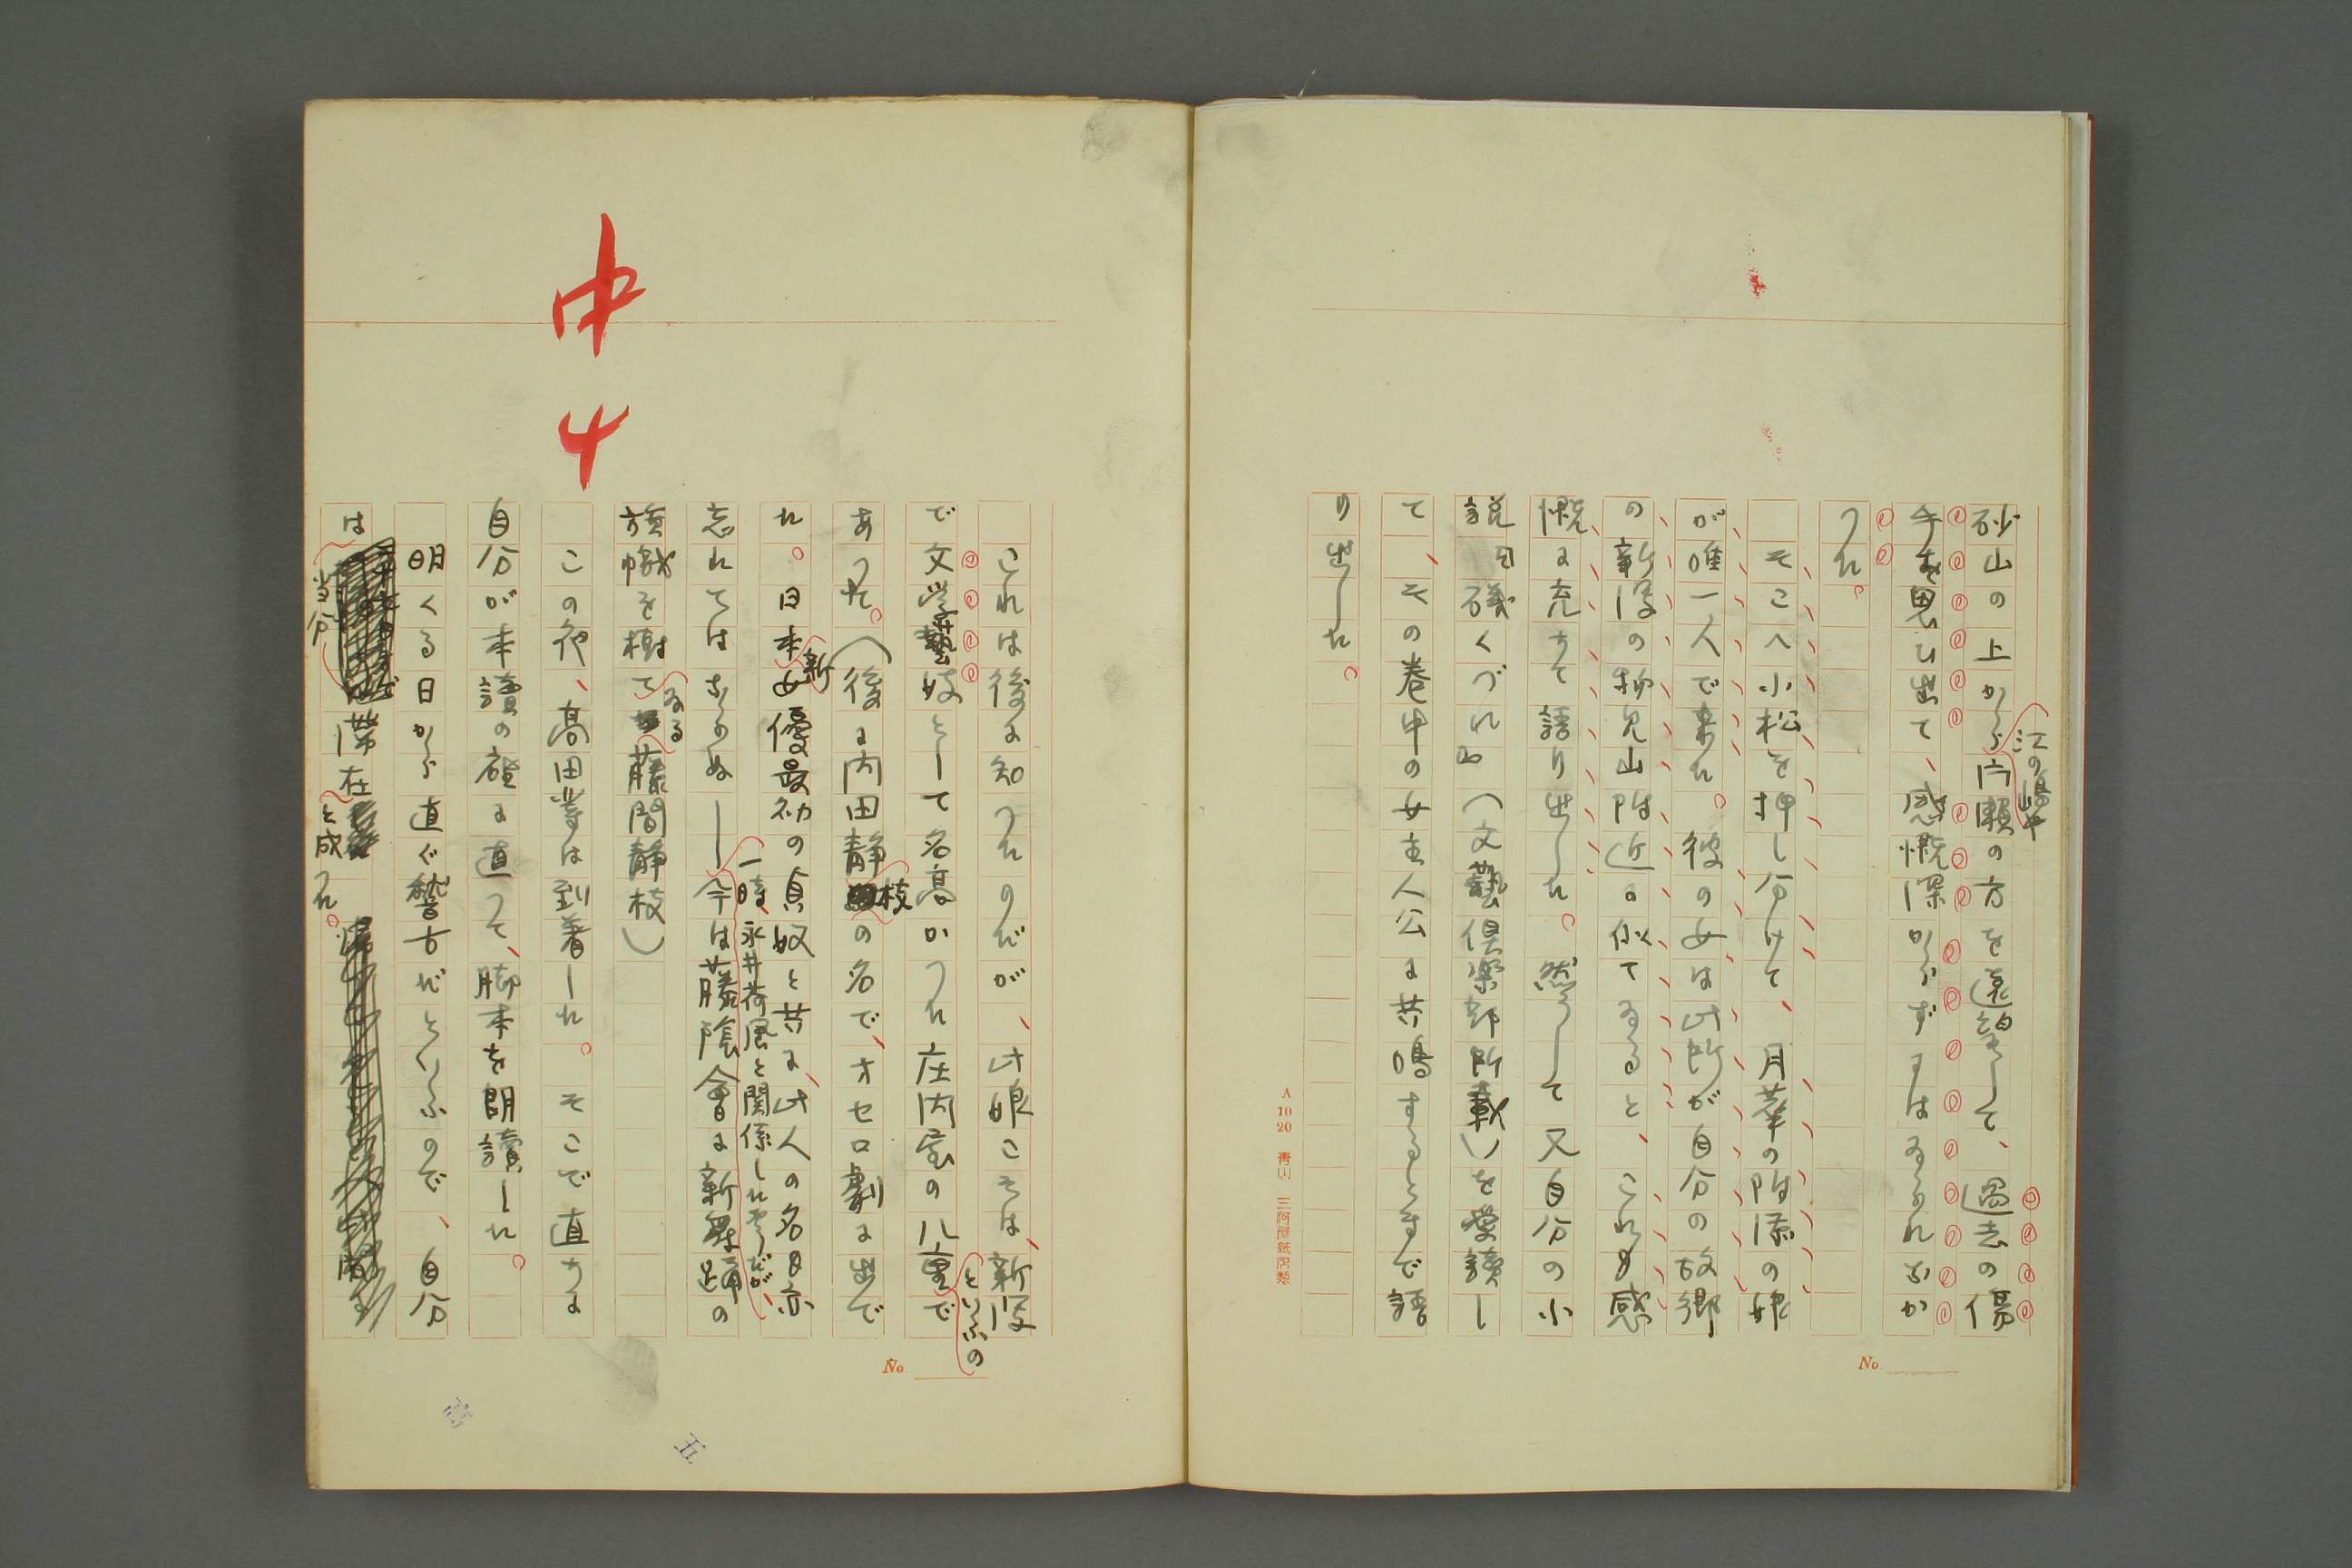 砂山の上から片瀬の方を遠望して、過去の傷
江の島や
手を思ひ出て、感慨深からずにはゐられなか
つた。
そこへ小松を押し分けて、月華の附添の娘
が唯一人で来た。彼の女は此所が自分の故郷
の新潟の物見山附近に似てゐると、これも感
慨に充ちて語り出した。然うして又自分の小
説『磯くづれ』（文藝倶楽部所載）を愛讀し
て、その巻中の女主人公に共鳴するとまで語
り出した。
A 10 20 青山 三河屋紙店製
No
中
4
これは後に知つたのだが、此娘こそは、新潟
で文学藝妓として名高かつた庄内屋の八重で
といふの
あつた。（後に内田静枝の名で、オセロ劇に出で
た。日本新女優最初の貞奴と共に、此人の名も亦
忘れてはならぬ――今は藤蔭會に新舞踊の
一時、永井荷風と関係したさうだが、
旗幟を樹てゐる藤間静枝）
この夜、高田等は到着した。そこで直ちに
自分が本讀の座に直つて、脚本を朗讀した。
明くる日から直ぐ稽古だといふので、自分
は当分滞在と成つた。
No
五